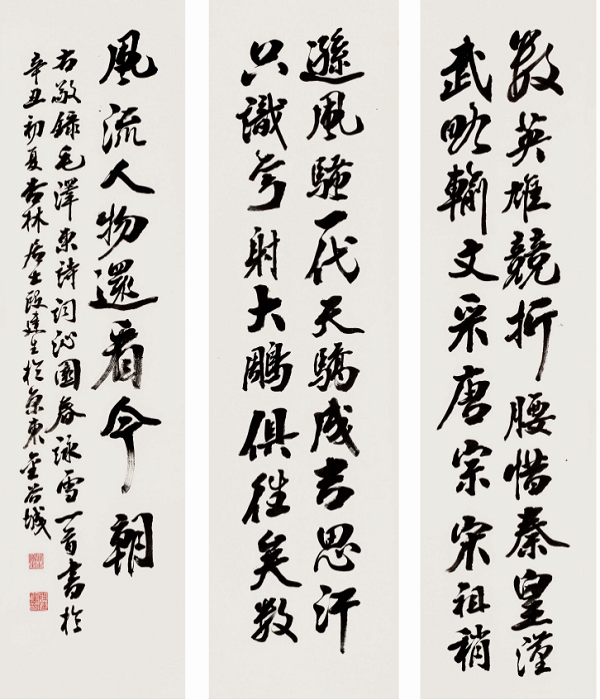 数英雄競折腰惜秦皇漢
武略輸文采唐宗宋祖稍
遜風騷一代天驕成吉思汗
只識弯射大鵰俱往矣数
風流人物還看今朝
右敬錄毛澤東詩詞沁園春詠雪一首書於
辛丑初夏杏林居士段建生於京東金谷城